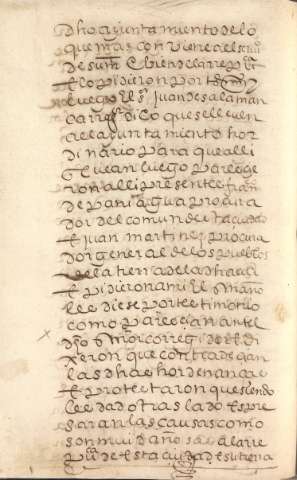 dho ajuntamiento de lo
que mas conviene al serui
de su mt E bien de la rrepu
E lo pidieron por
E luego El sr Juan de salaman
ca rregor dixo que se lleven
a el ajuntamiento hor
dinario para que alli
se vean luego pareçie
ron alli presentes fran
de paniagua procura
dor del comun de sta ciudad
E juan martinez procura
dor general de los pueblos
de la tierra de la dha ciu
E pidieron a mi El
les diese por testimonio
como pareçian ante l
dho sr corregidor E di
xeron que contradezian
las dhas hordenanças
E protestaron que siendo
les dado traslado Espre
saran las causas como
son mui dañosas a la rre
pu de esta ciudad E su tierra